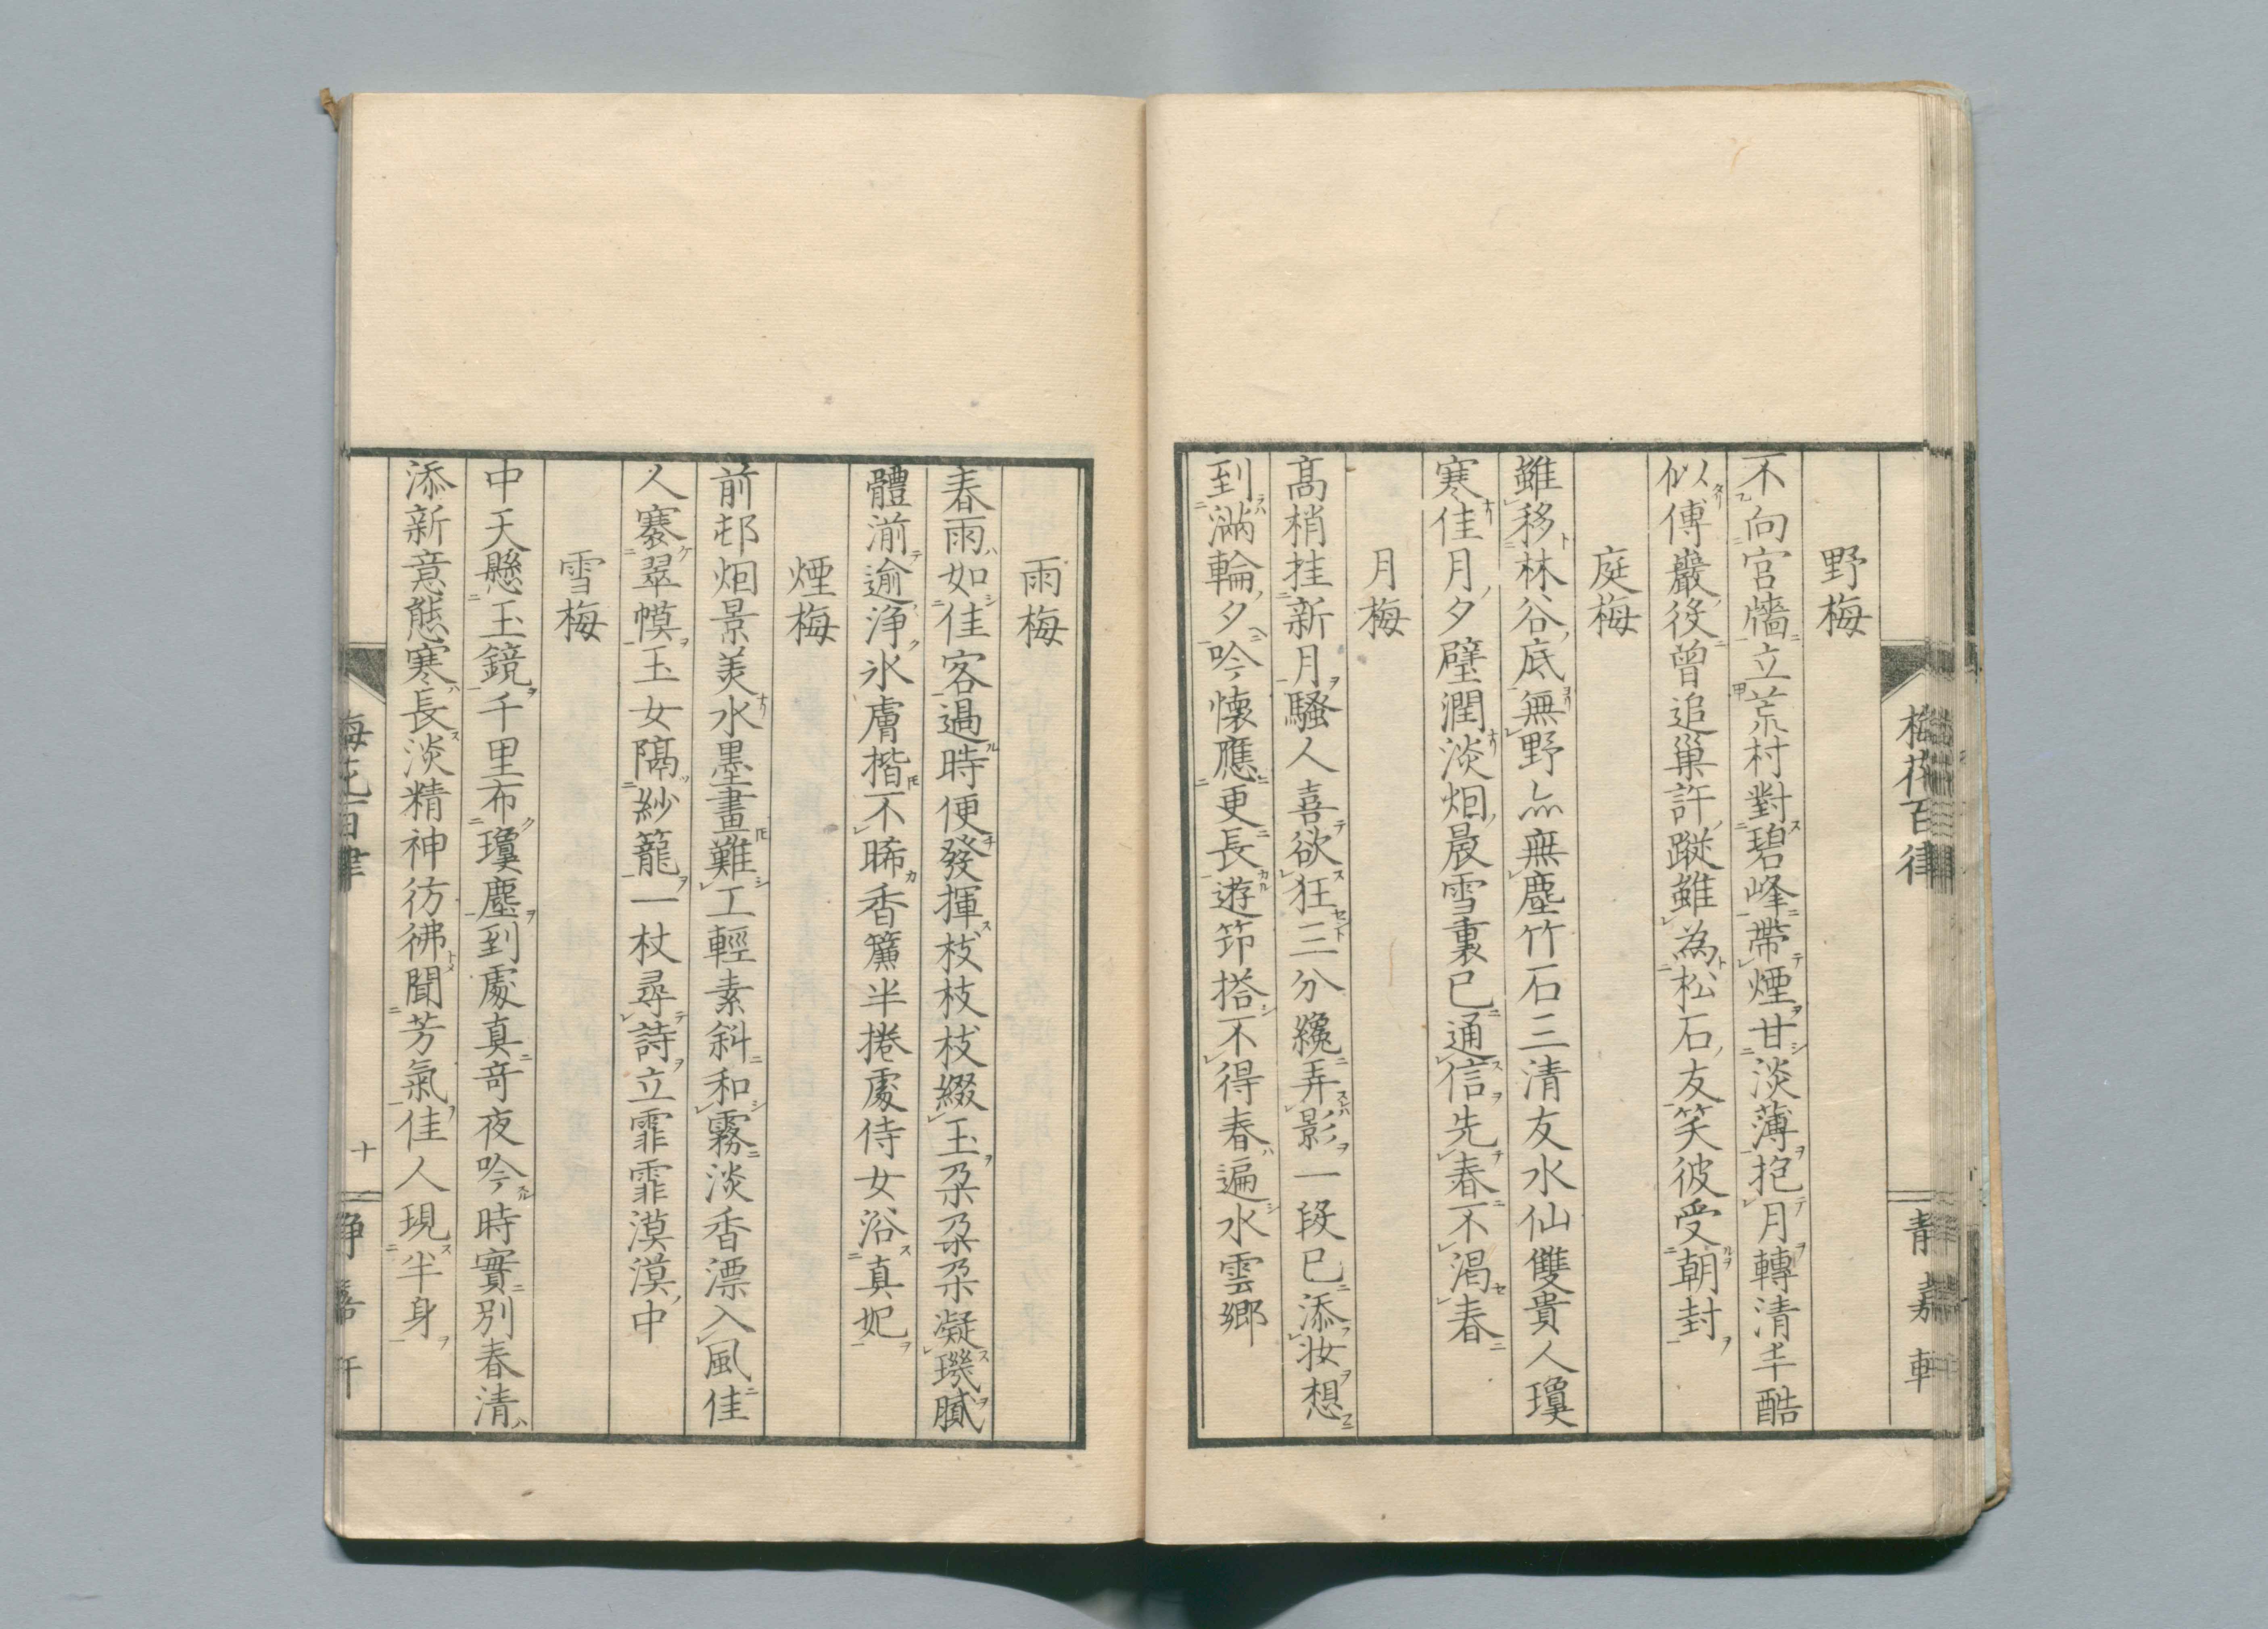 梅花百律
靜嘉軒
野梅
不向宮牆立荒村對碧峰帶煙甘淡薄抱月轉清丰酷
似傅巖役曾追巢許蹤雖為松石友笑彼受朝封
庭梅
雖移林谷底無野亦無塵竹石三清友水仙雙貴人瓊
寒佳月夕壁潤淡烟晨雪裏已通信先春不渇春
月梅
高梢挂新月騷人喜欲狂三分纔弄影一段已添妝想
到滿輪夕吟懷應更長遊筇搭不得春遍水雲鄉
雨梅
春雨如佳客過時便發揮枝枝枝綴玉朶朶朶凝璣膩
體湔逾浄氷膚揩不晞香簾半捲處侍女浴真妃
煙梅
前邨烟景美水墨畫難工輕素斜和霧淡香漂入風佳
人褰翠幙玉女隔紗籠一杖尋詩立霏霏漠漠中
雪梅
中天懸玉鏡千里布瓊塵到處真奇夜吟時實別春清
添新意態寒長淡精神彷彿聞芳氣佳人現半身
梅花百律
十
靜嘉軒